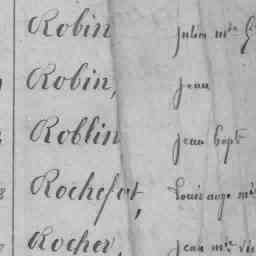 Robin Julien m.ie
Robin, jean
Roblin jean bapt
Rochefort, Louis ange m.ie
Rocher, jean m.ie